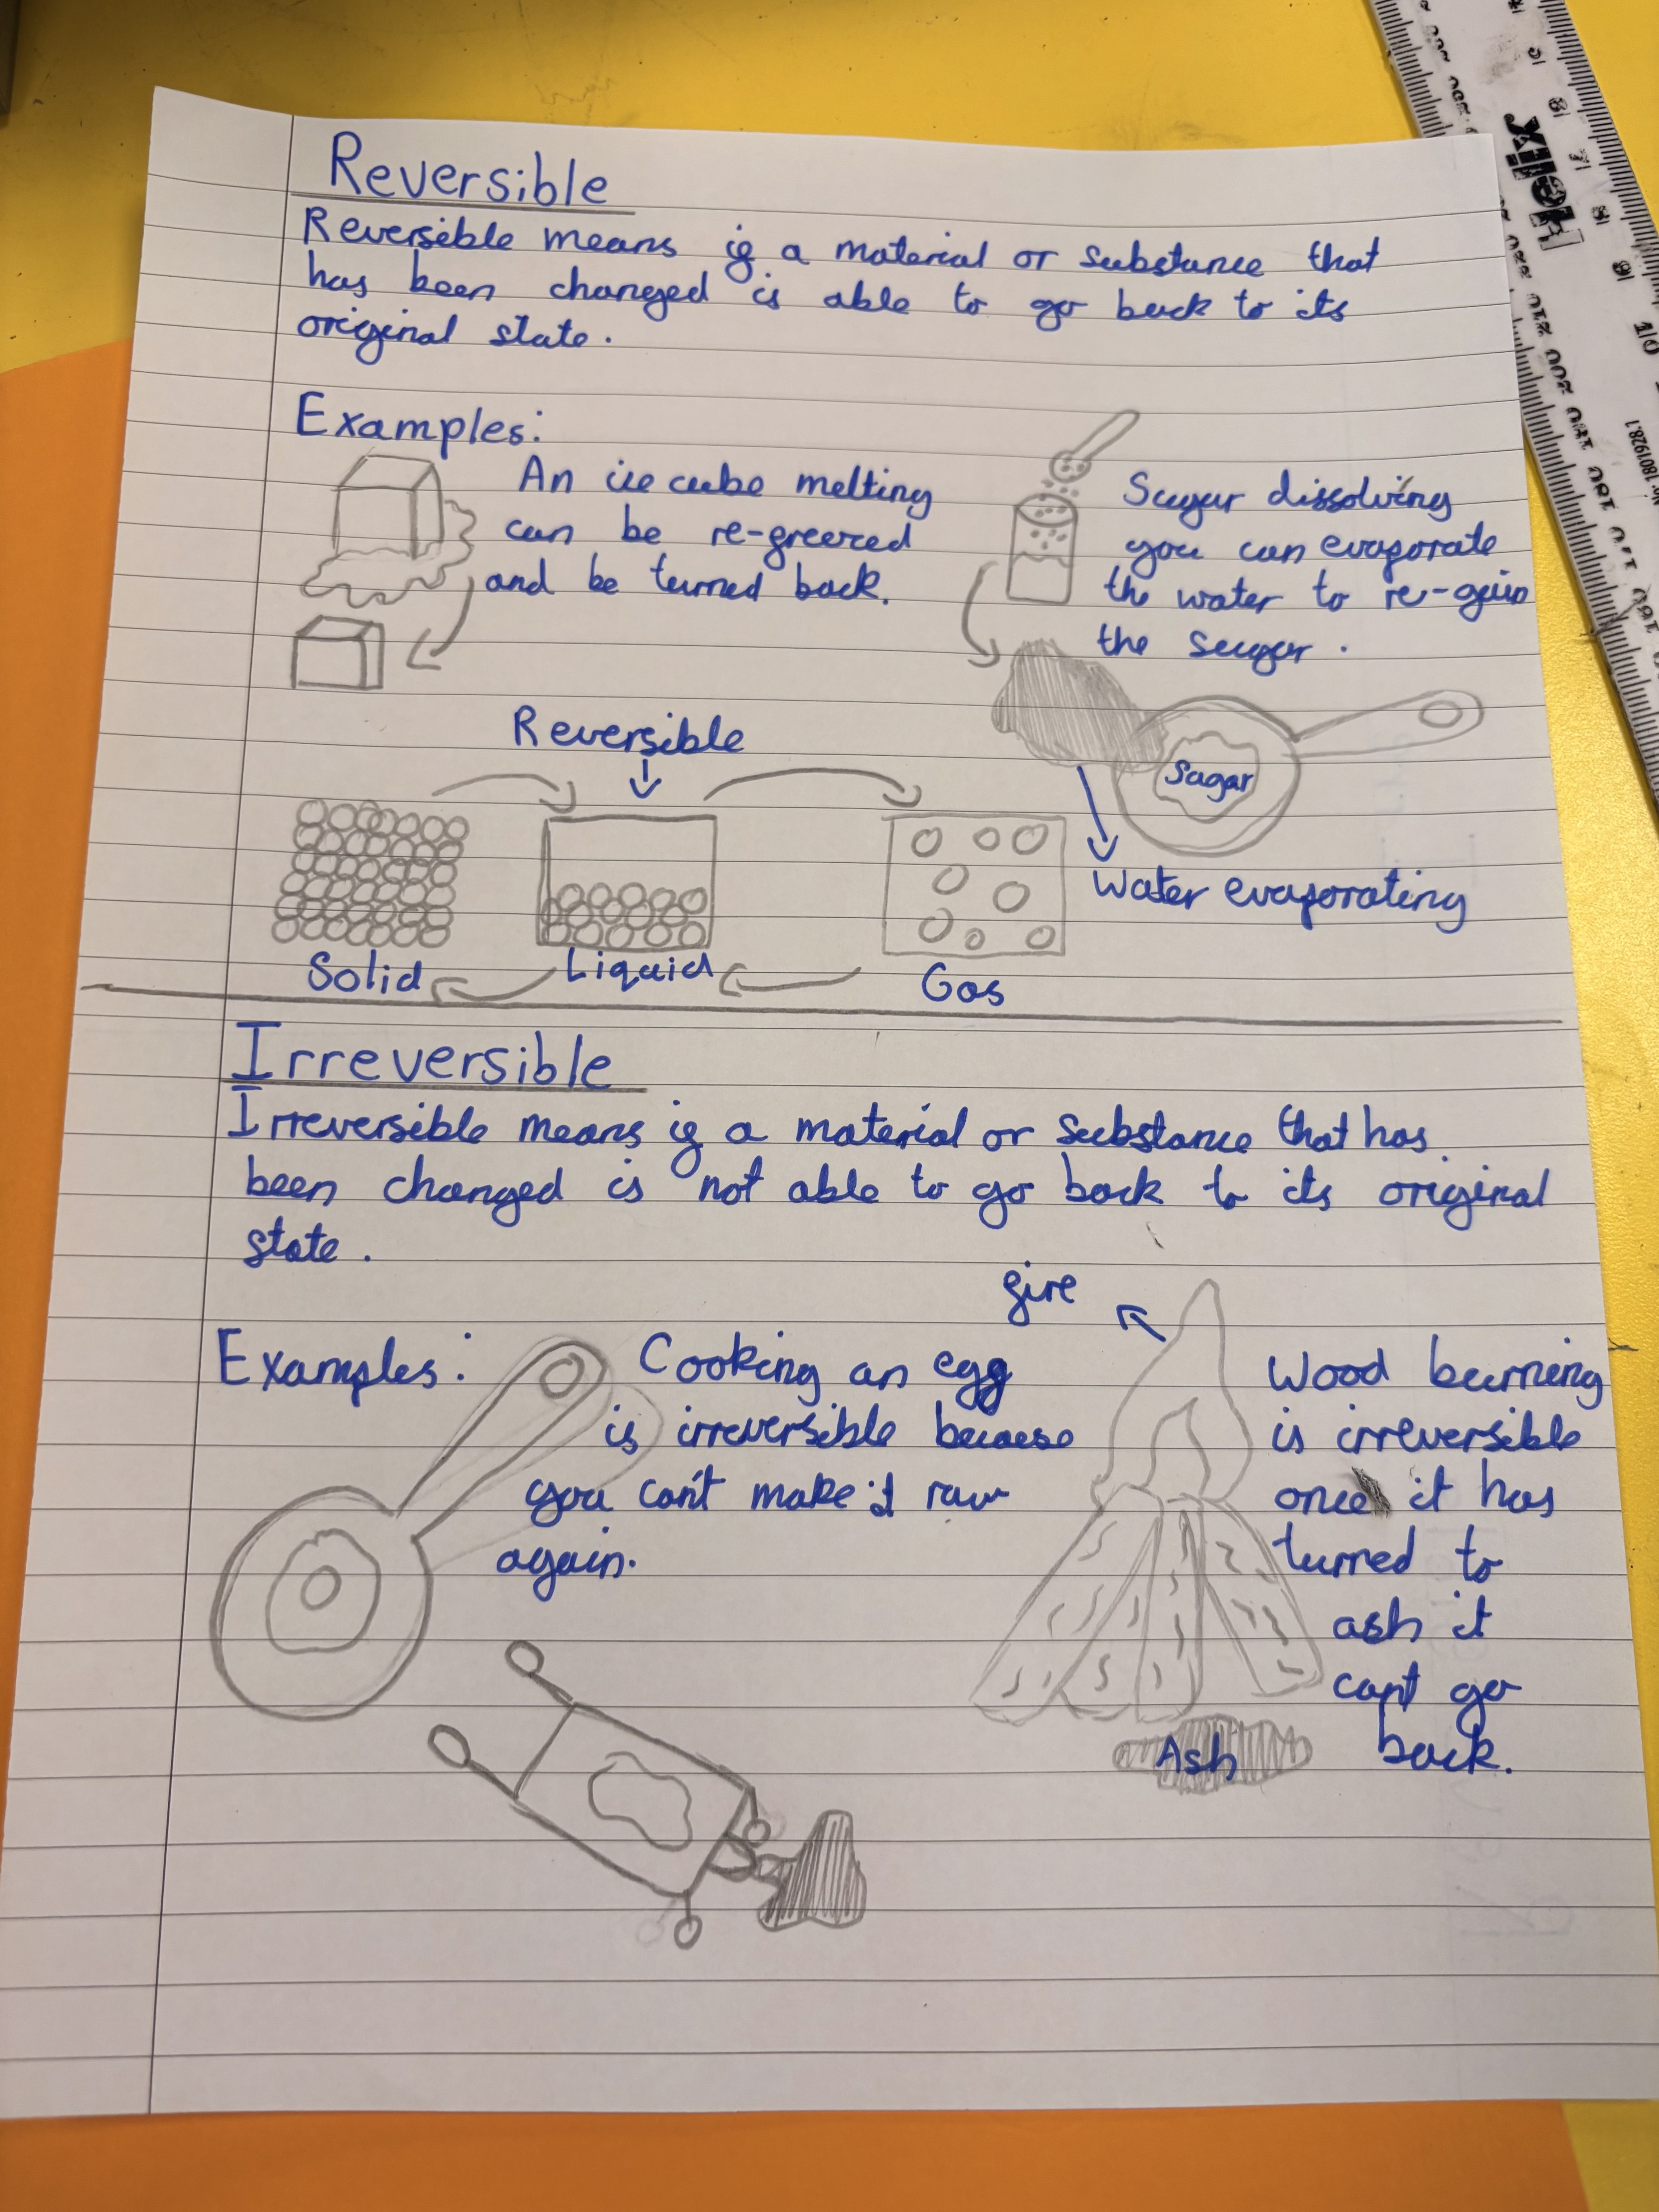 Reversible
Reversible means if a material or substance that
has been changed is able to go back to its
original state.
Examples:
An ice cube melting
can be re-freezed
and be turned back.
Sugar dissolving
you can evaporate
the water to re-gain
the sugar.
Reversible
Sugar
Water evaporating
Solid
Liquid
Gas
Irreversible
Irreversible means if a material or substance that has
been changed is not able to go back to its original
state.
Examples:
Cooking an egg
is irreversible because
you can't make it raw
again.
fire
Wood burning
is irreversible
once it has
turned to
ash it
can't go
back.
Ash
Helix